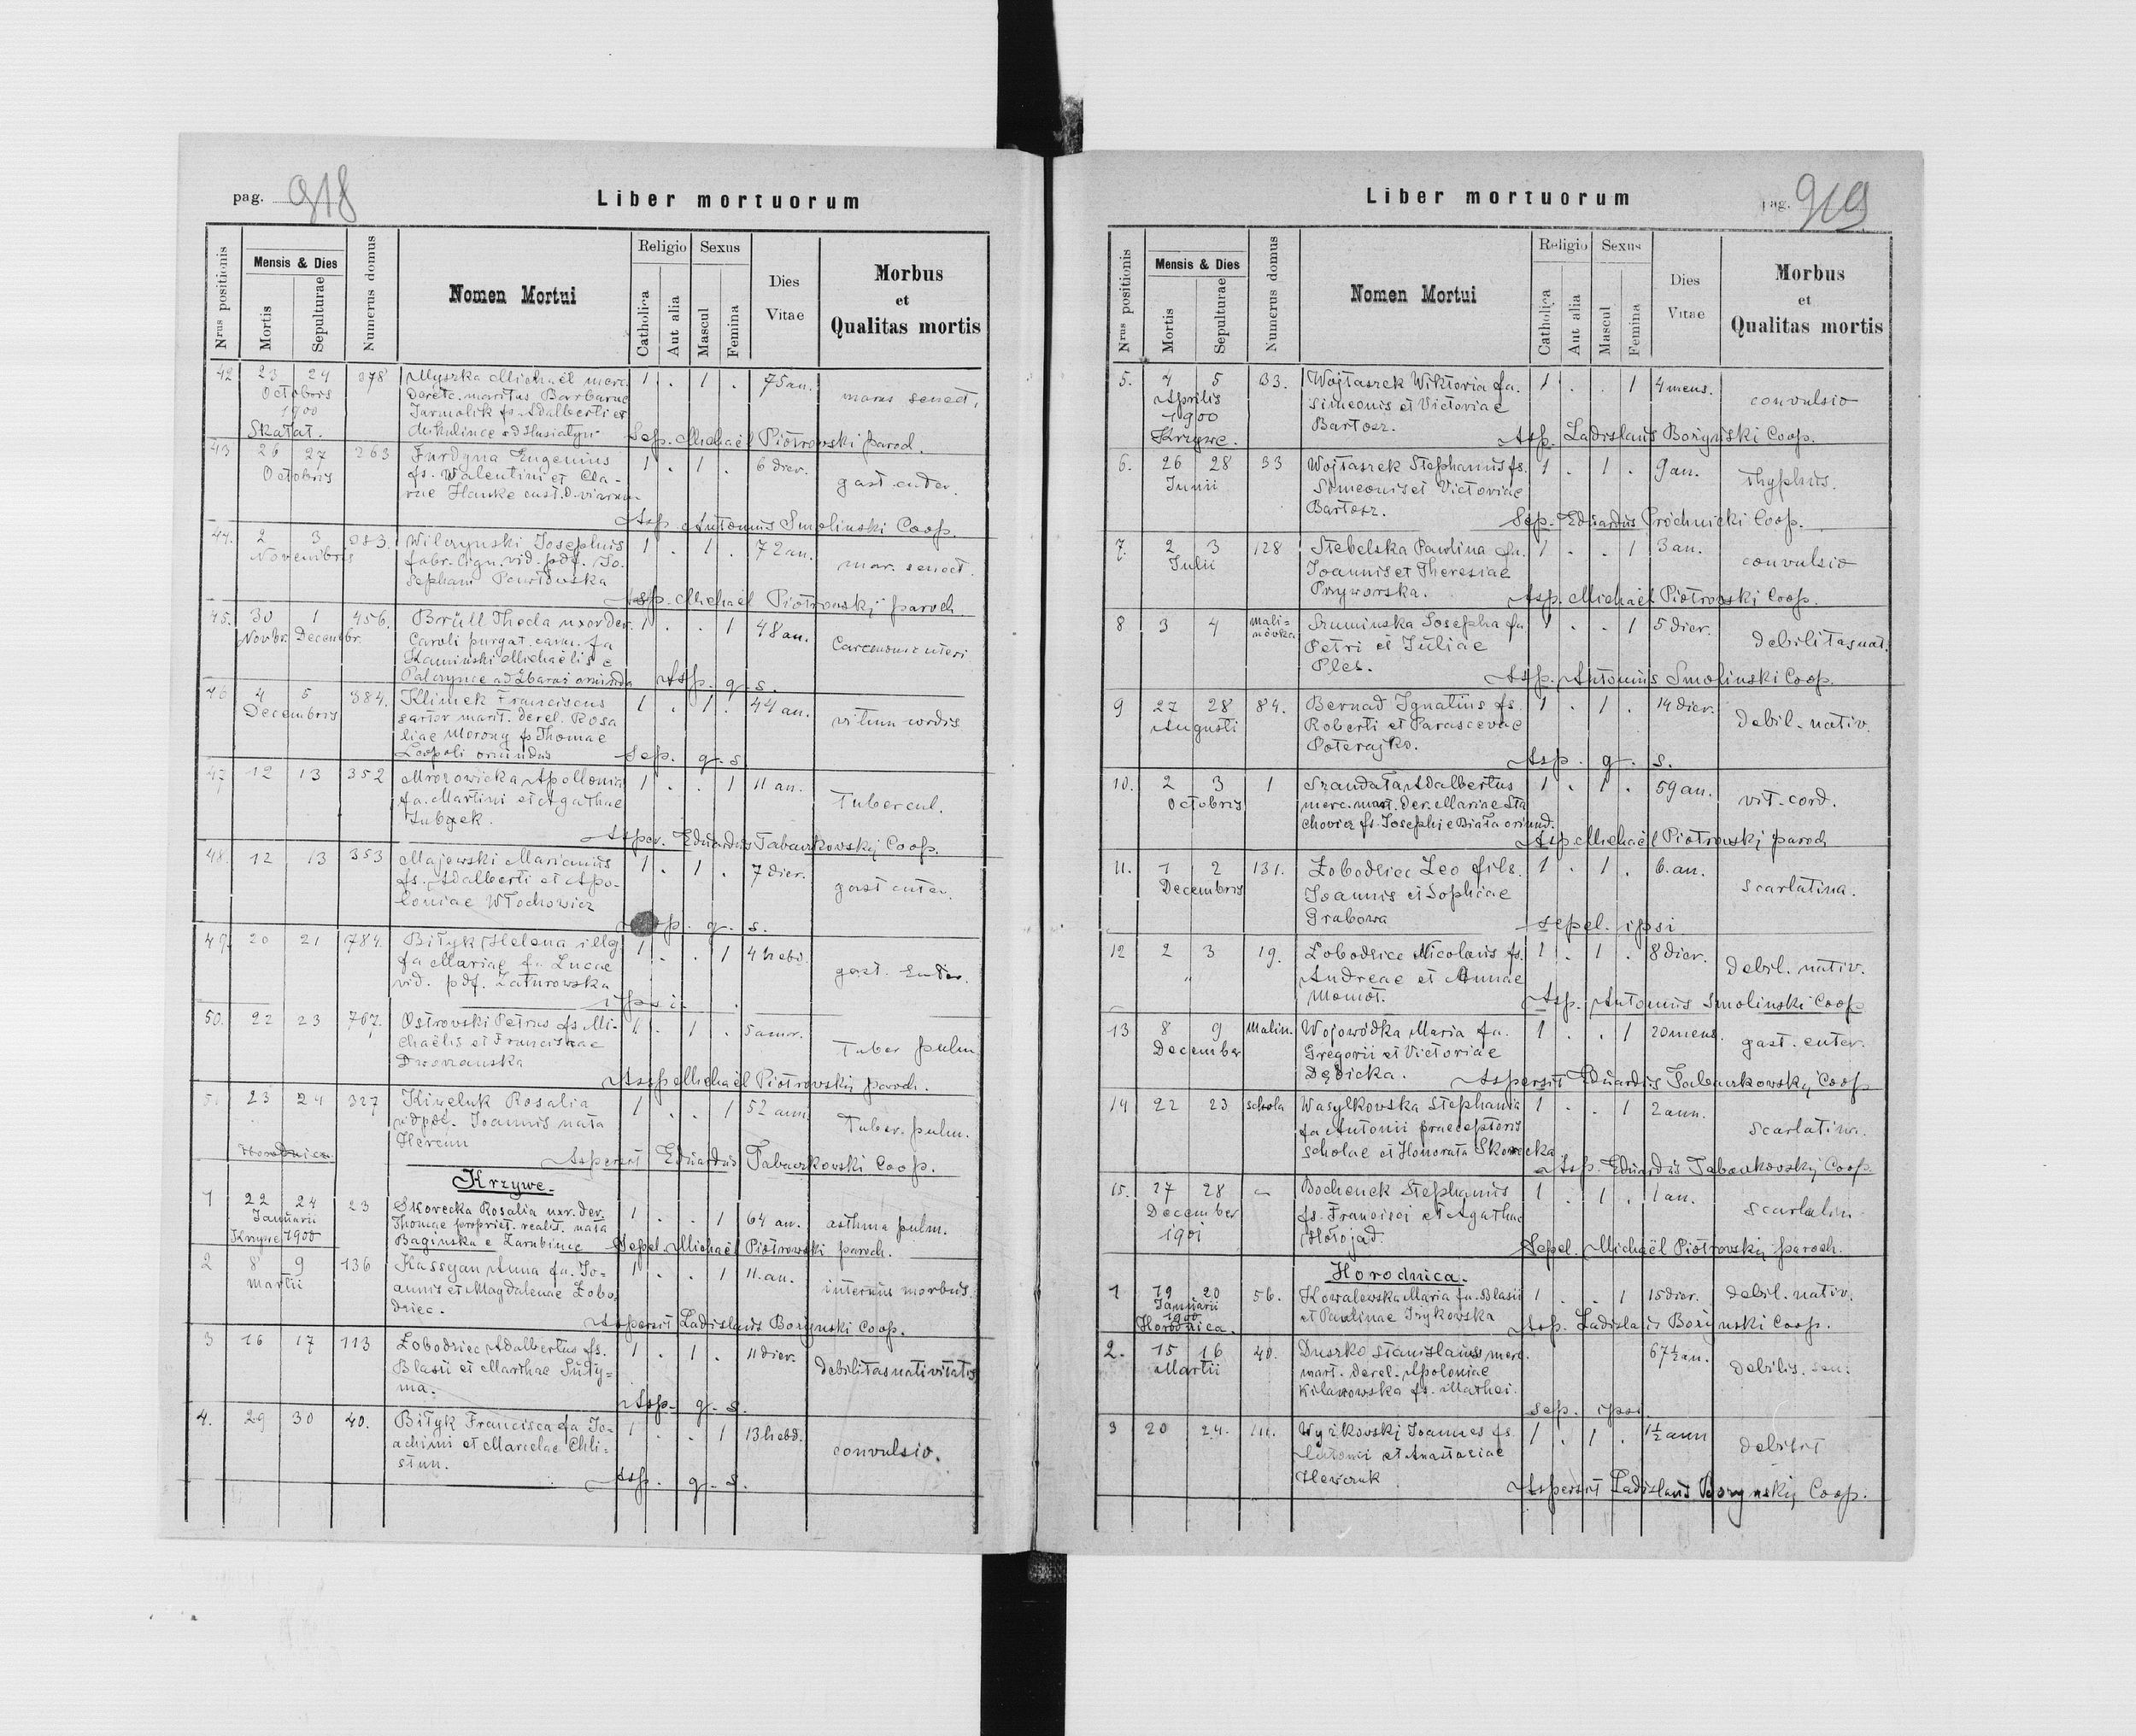 pag. 918
Liber mortuorum
Nrus positionis
Mensis & Dies
Mortis
Sepulturae
Numerus domus
Nomen Mortui
Religio
Catholica
Aut alia
Sexus
Mascul
Femina
Dies Vitae
Morbus
et
Qualitas mortis
42 23 24 378 Myszka Michaël merc. 1 . 1 . 75 an. senect.
Octobris derelc. maritus Barbarae
1900 Jarmolik fs. Adalberti et
Skałat.
Sep. Michaël Piotrowski paroch.
43 26 27 263 Furdyna Eugenius 1 . 1 . 6 dier. gast. enter.
Octobris fs. Valentini et Cla-
rae Hanke cust. d. viarum
Asp. Antonius Smolinski Coop.
44. 2 3 383. Wilczynski Josephus 1 . 1 . 72 an. mar. senect.
Novembris fabr. lign. vid. pdf. Jo.
Asp. Michaël Piotrowskj paroch
45. 30 1 456. Brüll Thecla uxor der. 1 . . 1 48 an. Carcenom. uteri
Novbr. Decembr. Caroli purgat. cam. fa
Kaminski Michaëlis e
ad Zbaraż oriunda
Asp. q. s.
46 4 5 384. Klimek Franciscus 1 . 1 . 44 an. vitium cordis
Decembris sartor marit. derel. Rosa
liae Morong fs Thomae
Leopoli oriundus
Sep. q. s.
47 12 13 352 Mrozowicka Apollonia 1 . . 1 11 an. Tubercul.
fa. Martini et Agathae
Asper. Eduardus Tabaczkovskj Coop.
48. 12 13 353 Majewski Marianus 1 . 1 . 7 dier. gast enter.
fs. Adalberti et Apo-
loniae Włochowicz
Asp. q. s.
49. 20 21 784. Biłyk Helena illeg 1 . . 1 4 hebd. gast. enter.
fa Mariae fa Lucae
vid. pdf. Zaturowska
ipsi
50. 22 23 767. Ostrovski Petrus fs Mi- 1 . 1 . Tuber pulm.
chaëlis et Franciscae
Dworzanska
Asp Michaël Piotrowskj paroch.
51 23 24 327 Kiweluk Rosalia 1 . . 1 52 ann. Tuber. pulm.
vdpdf. Joannis nata
Herenn
Horodnica
Aspersit Eduardus Tabaczkovski Coop.
Krzywe.
1 22 24 23 Skorecka Rosalia uxr. der. 1 . . 1 64 an. asthma pulm.
Januarii Thomae propriet. realit. nata
Krzywe 1900 Baginska e Zarubince
Sepel. Michaël Piotrowski paroch.
2 8 9 136 Kassyan Anna fa. Jo- 1 . . 1 11. an. internus morbus.
Martii annis et Magdalenae Łobo
dziec.
Aspersit Ladislaus Bożynski Coop.
3 16 17 113 Łobodziec Adalbertus fs. 1 . 1 . 11 dier. debilitas nativitatis
Blasii et Marthae Sudy-
ma.
Asp. q. s.
4. 29 30 40. Biłyk Francisca fa Jo- 1 . . 1 13 hebd. convulsio.
achimi et Marcelae Chli-
stun.
Asp. q. s.
Liber mortuorum
pag. 919
Nrus positionis
Mensis & Dies
Mortis
Sepulturae
Numerus domus
Nomen Mortui
Religio
Catholica
Aut alia
Sexus
Mascul
Femina
Dies Vitae
Morbus
et
Qualitas mortis
5. 4 5 33. Wojtaszek Wiktoria fa. 1 . . 1 4 mens. convulsio
Aprilis Simeonis et Victoriae
1900 Bartosz.
Krzywe.
Asp. Ladislaus Bożynski Coop.
6. 26 28 33 Wojtaszek Stephanus fs. 1 . 1 . 9 an. thyphus.
Junii Simeonis et Victoriae
Bartosz.
Sep. Eduardus Próchnicki Coop.
7. 2 3 128 Stebelska Paulina fa. 1 . . 1 3 an. convulsio
Julii Joannis et Theresiae
Przyworska.
Asp. Michaël Piotrowskj Coop.
8 3 4 Mali-nówka Szuminska Josepha fa 1 . . 1 5 dier. debilitas nat.
Petri et Juliae
Ples.
Asp. Antonius Smolinski Coop.
9 27 28 84. Bernad Ignatius fs. 1 . 1 . 14 dier. debil. nativ.
Augusti Roberti et Parascevae
Poterajko.
Asp. q. s.
10. 2 3 1 Szandała Adalbertus 1 . 1 . 59 an. vit. cord.
Octobris merc. mart. der. Mariae Sta
chovicz fs. Josephi e Biała oriund.
Asp Michaël Piotrowskj paroch
11. 1 2 131. Łobodziec Leo fils. 1 . 1 . 6. an. scarlatina.
Decembris Joannis et Sophiae
Grabowa
sepel. ipsi
12 2 3 19. Łobodziec Nicolaus fs. 1 . 1 . 8 dier. debil. nativ.
" Andreae et Annae
Momot.
Asp. Antonius Smolinski Coop
13 8 9 Malin. Wojowódka Maria fa. 1 . . 1 20 mens. gast. enter.
December Gregorii et Victoriae
Dębicka.
Aspersit Eduardus Tabaczkowskj Coop
14 22 23 schola Wasylkovska Stephania 1 . . 1 2 ann. scarlatina.
fa Antonii praeceptoris
scholae et Honorata Skorecka
Asp. Eduardus Tabaczkovskj Coop.
15. 27 28 — Bochenek Stephanus 1 . 1 . 1 an. scarlatin.
December fs. Francisci et Agathae
1901 Hołojad.
Sepel. Michaël Piotrovskj paroch.
Horodnica.
1 19 20 56. Kowalewska Maria fa. Blasii 1 . . 1 15 dier. debil. nativ.
Januarii et Paulinae Irzykowska
1900
Horodnica.
Asp. Ladislaus Bożynski Coop.
2. 15 16 40. Duszko Stanislaus merc. 67 ½ an. debilis. sen.
Martii mart. derel. Apoloniae
Kilanowska fs. Mathei.
sep. ipsi
3 20 24. Wyżykovskj Joannes fs. 1 . 1 . 1½ ann debilit
Antonii et Anastaziae
Hewczuk
Aspersit Ladislaus Bożynskij Coop.